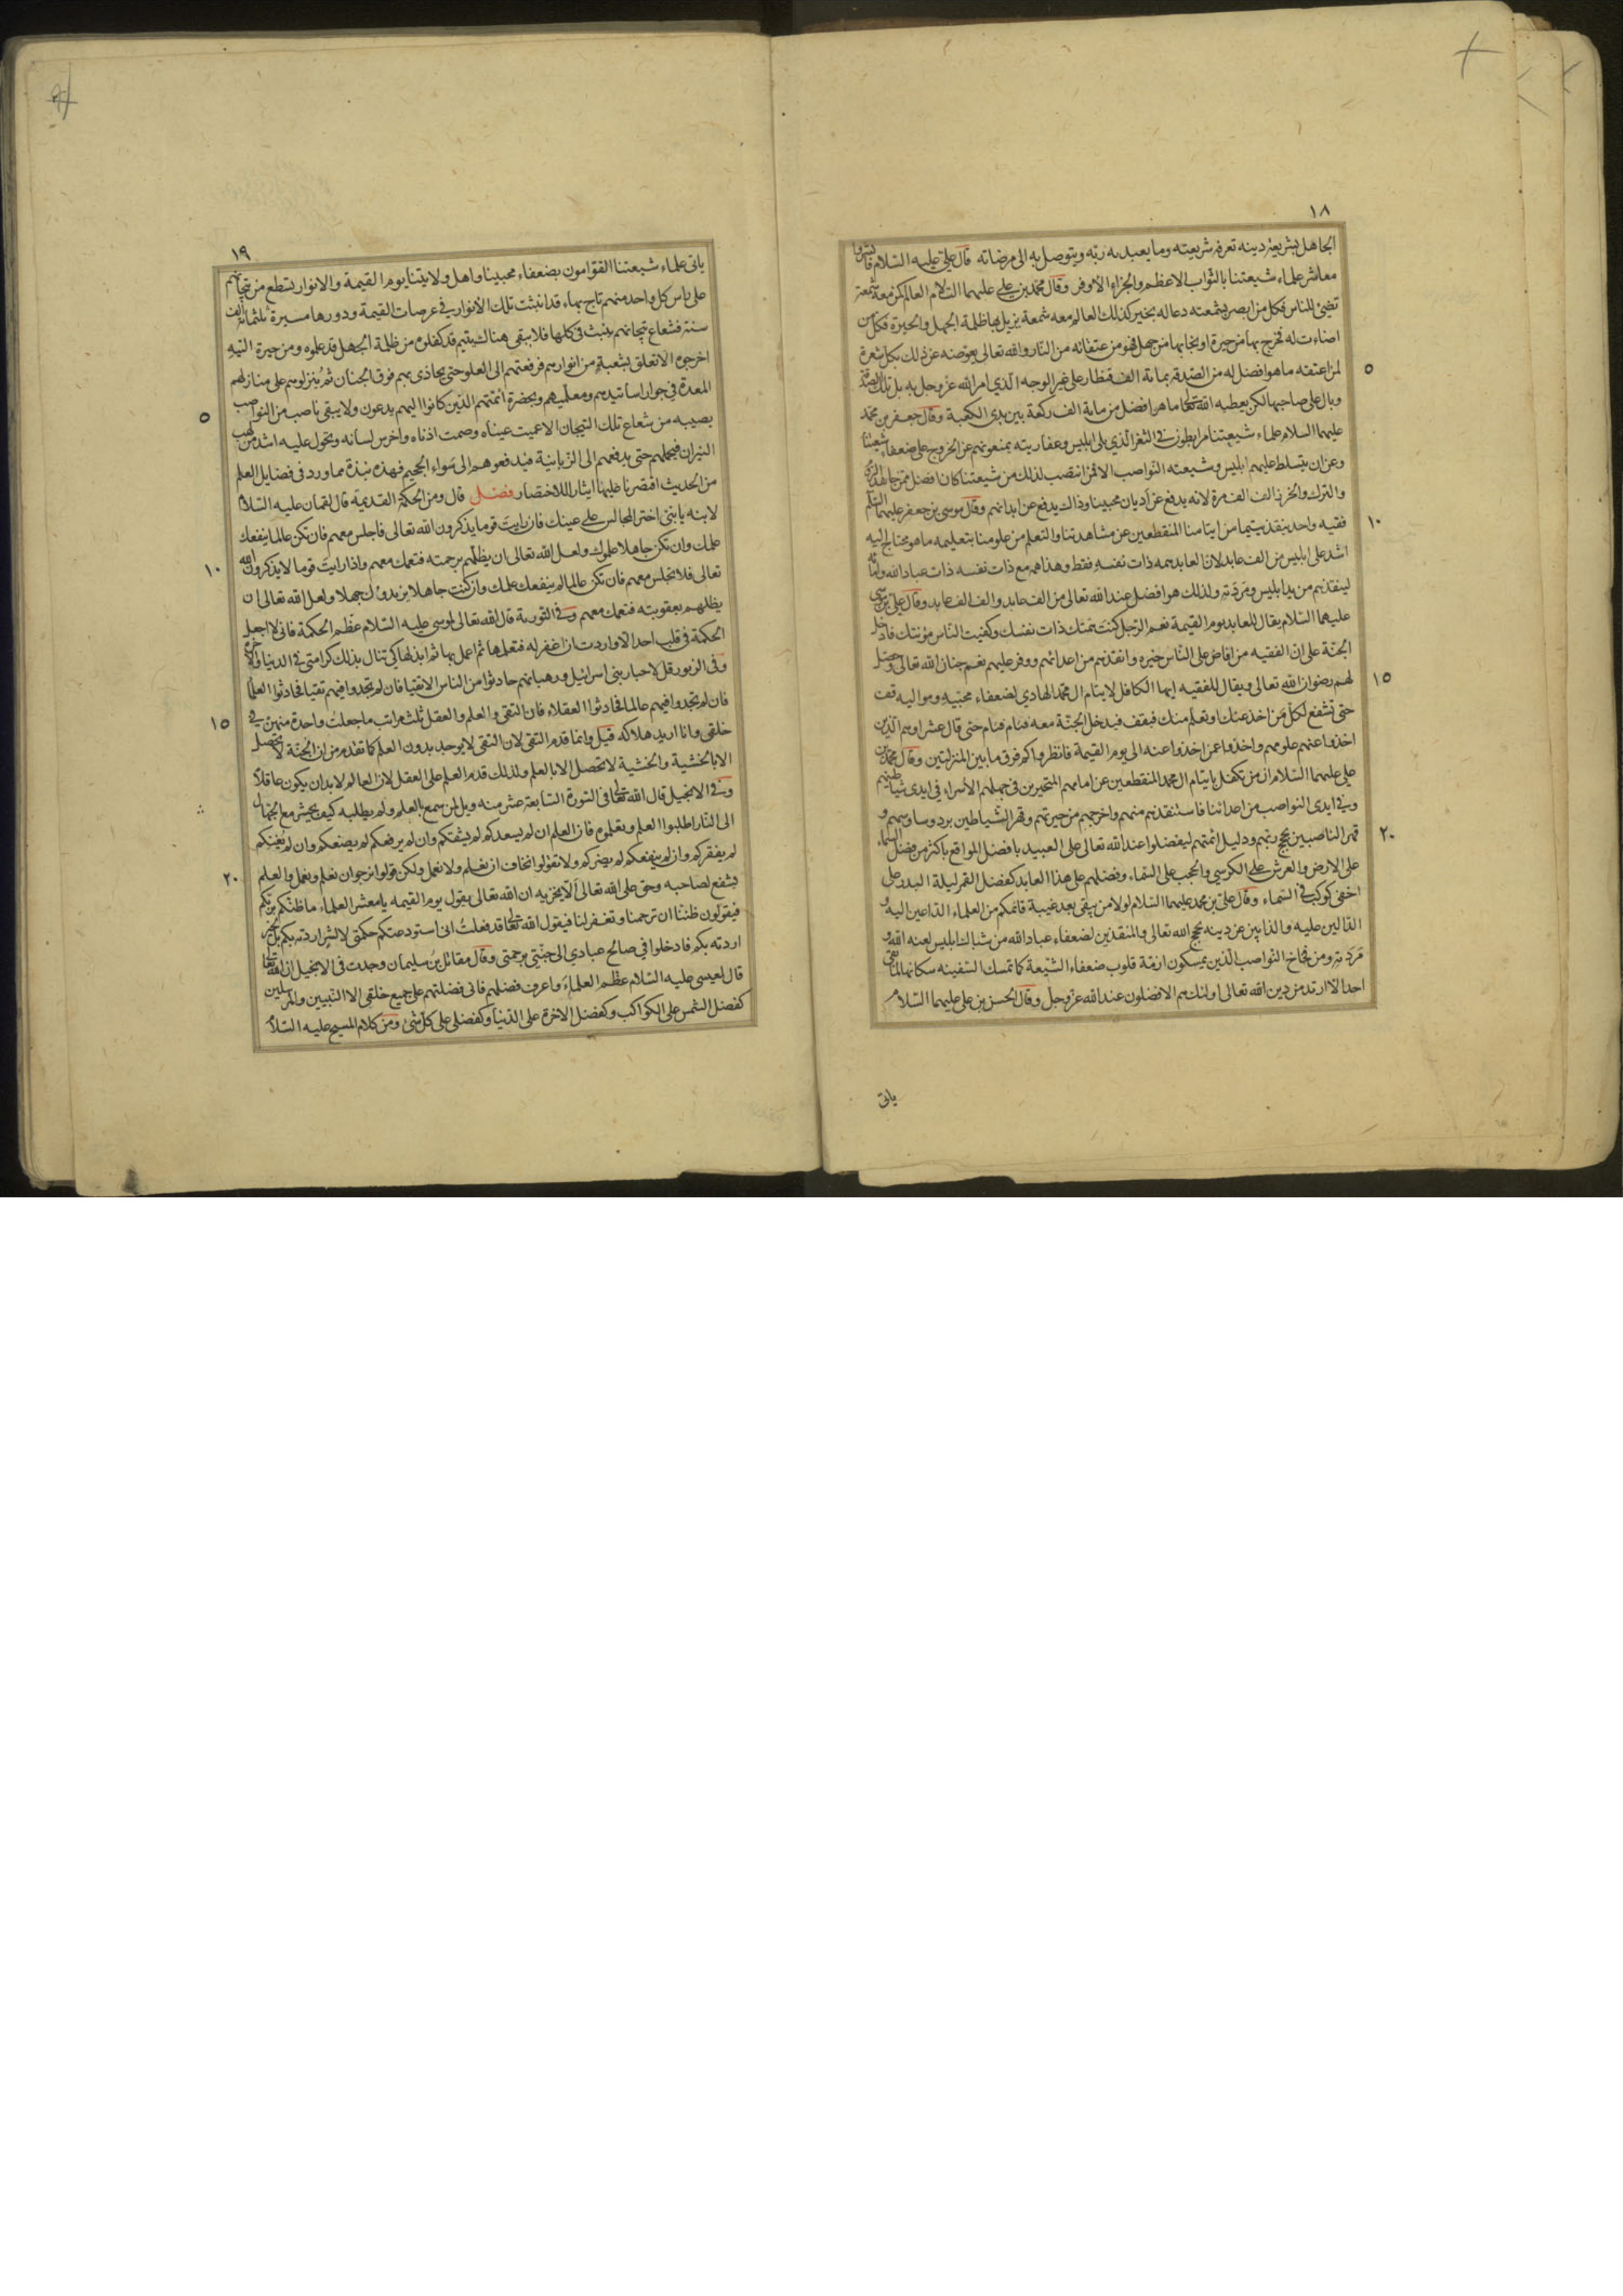 ١٨
الجاهل بشريعة دينه تعرفه شريعته وما يعبد به ربّه ويتوصل به الى مرضاته قال علي عليه السلام فابشروا
معاشر علماء شيعتنا بالثواب الاعظم والجزاء الاوفر وقال محمد بن علي عليهما السلام العالم كمن معه شمعة
تضيئ للناس فكل من ابصر بشمعته دعا له بخير كذلك العالم معه شمعة يزيل بها ظلمة الجهل والحيرة فكل من
اضاءت له فخرج بها من حيرة او نجا بها من جهل فهو من عتقائه من النار والله تعالى يعوّضه عن ذلك بكل شعرة
٥
لمن اعتقه ما هو افضل له من الصدقة بمائة الف قنطار على غير الوجه الذي امر الله عز وجل به بل تلك الصدقة
وبال على صاحبها لكن يعطيه الله تعالى ما هو افضل من ماية الف ركعة بين يدى الكعبة وقال جعفر بن محمد
عليهما السلام علماء شيعتنا مرابطون في الثغر الذي يلى ابليس وعفاريته يمنعونهم عن الخروج على ضعفاء شيعتنا
وعن ان يتسلط عليهم ابليس وشيعته النواصب الا فمن انتصب لذلك من شيعتنا كان افضل ممن جاهد الروم
والترك والخزر الف الف مرة لانه يدفع عن اديان محبينا وذاك يدفع عن ابدانهم وقال موسى بن جعفر عليهما السلام
١٠
فقيه واحد ينقذ يتيما من ايتامنا المنقطعين عن مشاهدتنا والتعلم من علومنا بتعليمه ما هو محتاج اليه
اشد على ابليس من الف عابد لان العابد همه ذات نفسه فقط وهذا همه مع ذات نفسه ذات عباد الله وامائه
لينقذهم من يد ابليس ومردته ولذلك هو افضل عند الله تعالى من الف عابد والف الف عابد وقال علي بن موسى
عليهما السلام يقال للعابد يوم القيمة نعم الرجل كنت همتك ذات نفسك وكفيت الناس مؤنتك فادخل
الجنة على ان الفقيه من افاض على الناس خيره وانقذهم من اعدائهم ووفر عليهم نعم جنان الله تعالى وحصل
١٥
لهم رضوان الله تعالى ويقال للفقيه ايها الكافل لايتام ال محمد الهادي لضعفاء محبيه ومواليه قف
حتى تشفع لكل من اخذ عنك او تعلم منك فيقف فيدخل الجنة معه فئام فئام حتى قال عشرا وهم الذين
اخذوا عنهم علومهم واخذوا عمن اخذوا عنه الى يوم القيمة فانظروا كم فرق ما بين المنزلتين وقال محمد بن
علي عليهما السلام ان من تكفل بايتام ال محمد المنقطعين عن امامهم المتحيرين في جهلهم الأسراء في ايدى شياطينهم
وفي ايدى النواصب من اعدائنا فاستنقذهم منهم واخرجهم من حيرتهم وقهر الشياطين برد وساوسهم و
٢٠
قهر الناصبين بحجج ربهم ودليل ائمتهم ليفضلوا عند الله تعالى على العبيد بافضل المواقع باكثر من فضل السماء
على الارض والعرش على الكرسي والحجب على السماء وفضلهم على هذا العابد كفضل القمر ليلة البدر على
اخفى كوكب في السماء وقال علي بن محمد عليهما السلام لولا من يبقى بعد غيبة قائمكم من العلماء الداعين اليه و
الدالين عليه والذابين عن دينه بحجج الله تعالى والمنقذين لضعفاء عباد الله من شباك ابليس لعنه الله و
مردته ومن فخاخ النواصب الذين يمسكون ازمة قلوب ضعفاء الشيعة كما تمسك السفينة سكانها لما بقى
احد الا ارتد من دين الله تعالى اولئك هم الافضلون عند الله عز وجل وقال الحسن بن علي عليهما السلام
ياتى
١٩
ياتى علماء شيعتنا القوامون بضعفاء محبينا واهل ولايتنا يوم القيمة والانوار تسطع من تيجانهم
على راس كل واحد منهم تاج بهاء قد انبثت تلك الانوار في عرصات القيمة ودورها مسيرة ثلثمائة الف
سنة فشعاع تيجانهم ينبث فى كلها فلا يبقى هناك يتيم قد كفلوه من ظلمة الجهل قد علموه ومن حيرة التيه
اخرجوه الا تعلق بشعبة من انوارهم فرفعتهم الى العلو حتى يحاذى بهم فوق الجنان ثم ينزلوهم على منازلهم
المعدة في جوار اساتيدهم ومعلميهم وبحضرة ائمتهم الذين كانوا اليهم يدعون ولا يبقى ناصب من النواصب
٥
يصيبه من شعاع تلك التيجان الا عميت عيناه وصمت اذناه واخرس لسانه وتحول عليه اشد من لهب
النيران فيحملهم حتى يدفعهم الى الزبانية فيدفعوهم الى سواء الجحيم فهذه نبذة مما ورد فى فضايل العلم
من الحديث اقتصرنا عليها ايثارا للاختصار فصل قال ومن الحكمة القديمة قال لقمان عليه السلام
لابنه يا بنى اختر المجالس على عينك فان رايت قوما يذكرون الله تعالى فاجلس معهم فان تكن عالما ينفعك
علمك وان تكن جاهلا علموك ولعل الله تعالى ان يظلهم برحمته فتعمك معهم واذا رايت قوما لا يذكرون الله
١٠
تعالى فلا تجلس معهم فان تكن عالما لم ينفعك علمك وان كنت جاهلا يزيدوك جهلا ولعل الله تعالى ان
يظلهم بعقوبته فتعمك معهم وفي التورية قال الله تعالى لموسى عليه السلام عظم الحكمة فانى لا اجعل
الحكمة في قلب احد الا واردت ان اغفر له فتعلمها ثم اعمل بها ثم ابذلها كى تنال بذلك كرامتى في الدنيا والآخرة
وفى الزبور قل لاحبار بنى اسرائيل ورهبانهم حادثوا من الناس الاتقيا فان لم تجدوا فيهم تقيا فحادثوا العلماء
فان لم تجدوا فيهم عالما فحادثوا العقلاء فان التقى والعلم والعقل ثلث مراتب ما جعلت واحدة منهن في
١٥
خلقى وانا اريد هلاكه قيل وانما قدم التقى لان التقى لا يوجد بدون العلم كما تقدم من ان الخشية لا تحصل
الا بالخشية والخشية لا تحصل الا بالعلم ولذلك قدم العلم على العقل لان العالم لا بد ان يكون عاقلا
وفي الانجيل قال الله تعالى فى السورة السابعة عشر منه ويل لمن سمع بالعلم ولم يطلبه كيف يحشر مع الجهال
الى النار اطلبوا العلم وتعلموه فان العلم ان لم يسعدكم لم يشقكم وان لم يرفعكم لم يضعكم وان لم يغنكم
لم يفقركم وان لم ينفعكم لم يضركم ولا تقولوا نخاف ان نعلم ولا نعمل ولكن قولوا نرجوان نعلم ونعمل والعلم
٢٠
يشفع لصاحبه وحق على الله تعالى الا يخزيه ان الله تعالى يقول يوم القيمه يا معشر العلماء ما ظنكم بربكم
فيقولون ظننا ان ترحمنا وتغفر لنا فيقول الله تعالى قد فعلت انى استودعتكم حكمتى لا لشر اردته بكم بل لخير
اردته بكم فادخلوا في صالح عبادي الى جنتى برحمتى وقال مقاتل بن سليمان وجدت فى الانجيل ان الله تعالى
قال لعيسى عليه السلام عظم العلماء واعرف فضلهم فانى فضلتهم على جميع خلقى الا النبيين والمرسلين
كفضل الشمس على الكواكب وكفضل الاخرة على الدنيا وكفضلى على كل شئ ومن كلام المسيح عليه السلام